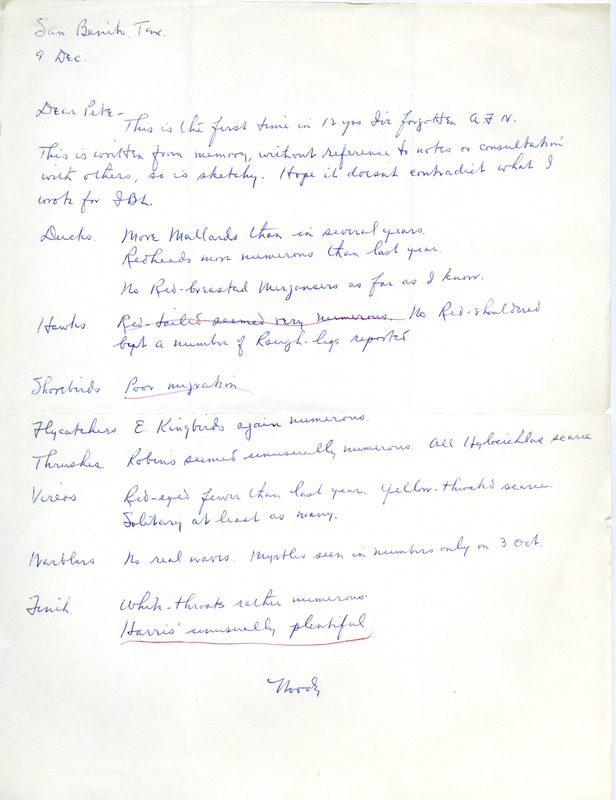 San Benito, Tex.
9 Dec.
Dear Pete -
This is the first time in 12 yrs I've forgotten A.F.N.
This is written from memory, without reference to notes or consultation
with others, so is sketchy. Hope it doesn't contradict what I
wrote for IBL.
Ducks. More Mallards than in several years.
Redheads more numerous than last year.
No Red-breasted Mergansers as far as I know.
Hawks Red-tailed seemed very numerous. No Red-shouldered
but a number of Rough-legs reported
Shorebirds Poor migration
Flycatchers. E. Kingbirds again numerous.
Thrushes Robins seemed unusually numerous. All Hylocichlas scarce
Vireos Red-eyed fewer than last year. Yellow-throated scarce.
Solitary at least as many.
Warblers No real waves. Myrtles seen in numbers only on 3 Oct.
Finch. White-throats rather numerous.
Harris' unusually plentiful
Woody